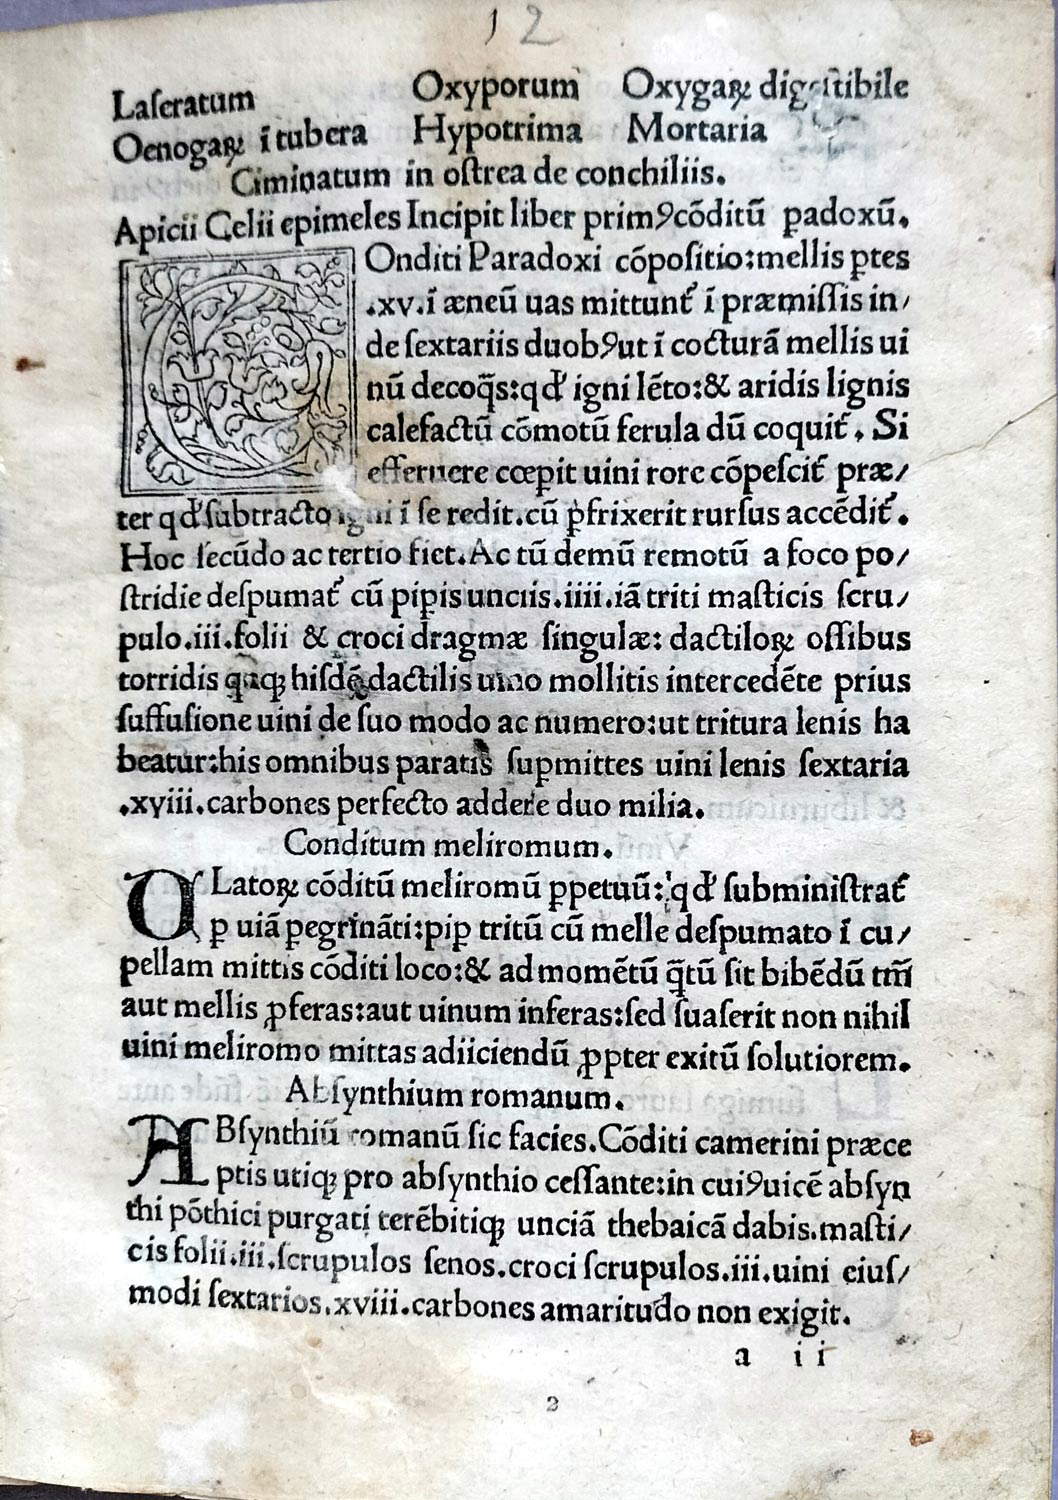 12
Laſeratum Oxyporum Oxygaꝝ digeſtibile
Oenogaꝝ ī tubera Hypotrima Mortaria
Ciminatum in oſtrea de conchiliis.
Apicii Celii epimeles Incipit liber primꝰ cōditū ꝑadoxū.
COnditi Paradoxi cōpoſitio:mellis ꝑtes
.xv.ī æneū uas mittunt᷑ ī præmiſſis in/
de ſextariis duobꝰut ī cocturā mellis ui
nū decoq̄s:qđ igni lēto:& aridis lignis
calefactū cōmotū ferula dū coquit᷑. Si
efferuere cœꝑit uini rore cōpeſcit᷑ præ/
ter qđ ſubtracto igni ī ſe redit.cū ꝑfrixerit rurſus accēdit᷑.
Hoc ſecūdo ac tertio fiet.Ac tū demū remotū a foco po/
ſtridie deſpumat᷑ cū piꝑis unciis.iiii.iā triti maſticis ſcru/
pulo.iii.folii & croci dragmæ ſingulæ: dactiloꝝ oſſibus
torridis hiſdē dactilis uino mollitis intercedēte prius
ſuffuſione uini de ſuo modo ac numero:ut tritura lenis ha
beatur:his omnibus paratis ſuꝑmittes uini lenis ſextaria
.xviii.carbones perfecto addere duo milia.
Conditum meliromum.
OLatoꝝ cōditū meliromū ꝑpetuū:qđ ſubminiſtrat᷑
ꝑ uiā ꝑegrināti:piꝑ tritū cū melle deſpumato ī cu/
pellam mittis cōditi loco:& ad momētū q̄tū ſit bibēdū tm̄
aut mellis ꝓferas:aut uinum inferas:ſed ſuaſerit non nihil
uini meliromo mittas adiiciendū ꝓpter exitū ſolutiorem.
Abſynthium romanum.
ABſynthiū romanū ſic facies.Cōditi camerini præce
ptis utiqꝫ pro abſynthio ceſſante:in cuiꝰuicē abſyn
thi pōthici purgati terēbitiqꝫ unciā thebaicā dabis.maſti/
cis folii.iii.ſcrupulos ſenos.croci ſcrupulos.iii.uini eiuſ/
modi ſextarios.xviii.carbones amaritudo non exigit.
a ii
2